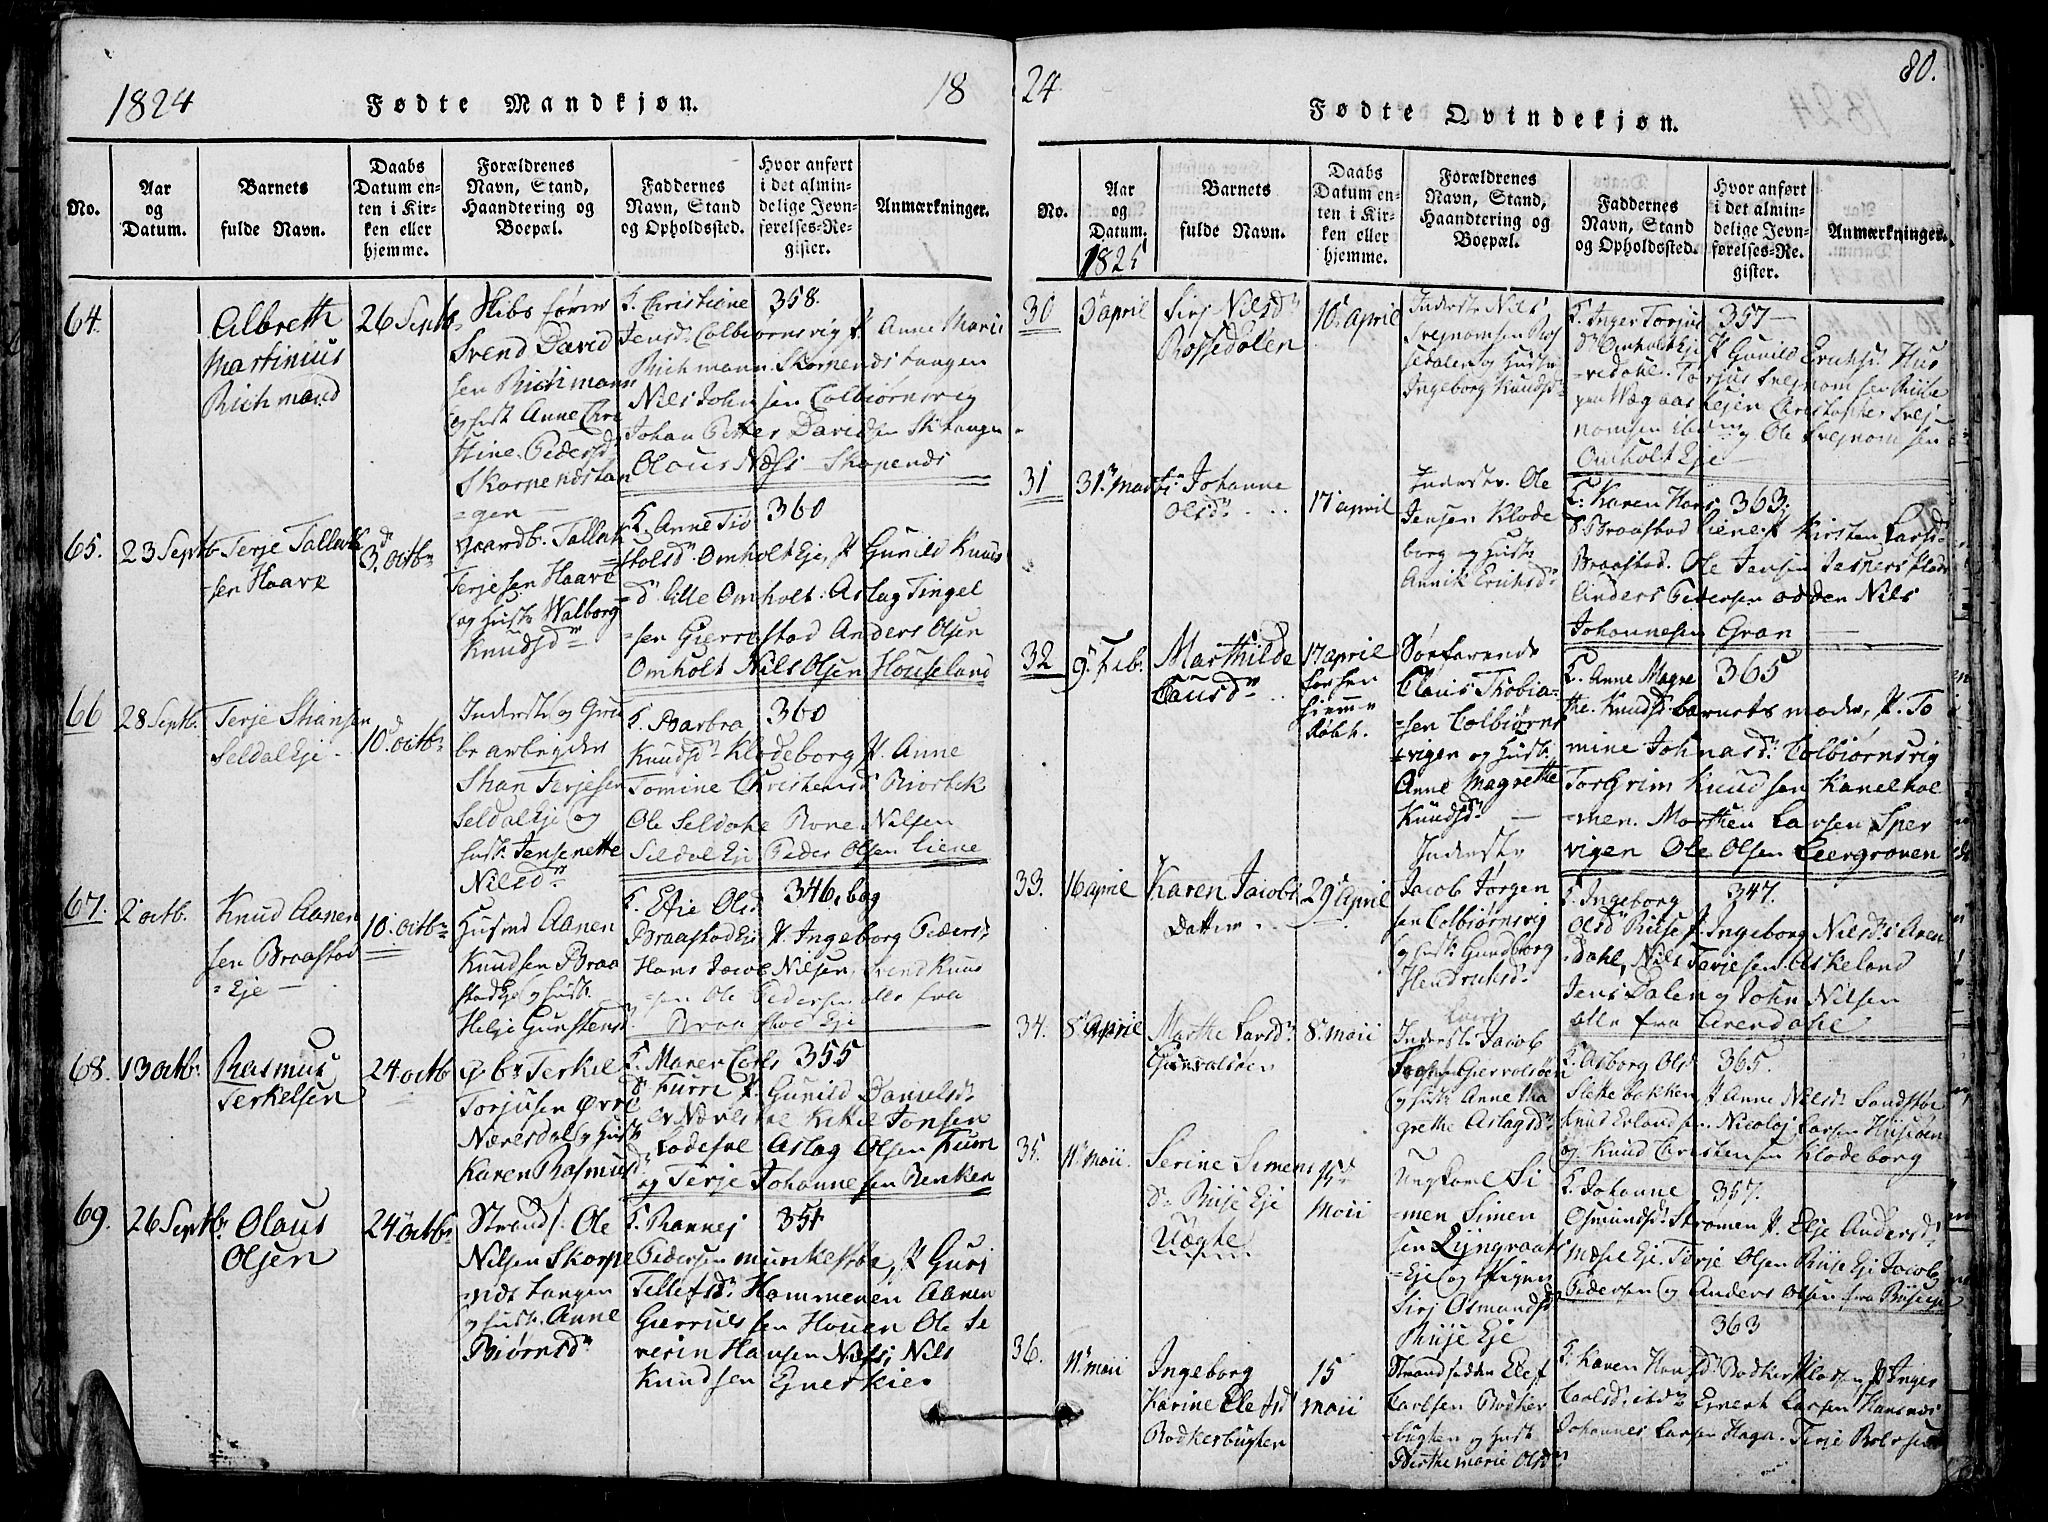 1824
Fødte Mandkjøn.
18
No.
Aar
og
Datum.
Barnets
fulde Navn.
Daabs
Datum en-
ten i Kir-
ken eller
hjemme.
Forældrenes
Navn, Stand,
Haandtering og
Boepæl.
Faddernes
Navn, Stand
og Opholdssted.
Hvor anført
i det almin-
delige Jevn-
førelses-Re-
gister.
Anmærkninger.
64.
Albreth
Martinius
Richmand
26 Septb.
Skibsfører
Svend David
sen Richmann
og hust Anne Chri
stine Pedersd
Skarpendstan
=gen
F. Christiene 358.
Jensd. Colbiørnsvig P. Anne Marie
Richmann Skarpendstangen
Nils Johnsen Colbiørnsvig
Johan Petter Davidsen Sk.tangen
Olaus Næss Skarpends
65.
23 Septb.
Terje Tallevs
sen Haave
3. octbr
Gaardb. Tallevs
Terjesen Haave
og hustr Walborg
Knudsd
F. Anne Tiø 360
stolsd. Omholt Eje, P. Gunild Knuds
d. lille Omholt. Aslag Tingel
=sen Gierrestad Anders Olsen
Omholt Nils Olsen Houseland
66
28 Septb.
Terje Shansen
Seldal Eje
10. octb.
Inderste og Gru
be arbeyder
Shan Terjesen
Seldal Eje og
hust. Jensenette
Nilsd.
F. Barbra 360
Knudsd. Klodeborg P. Anne
Tomine Christensd Biorbek
Ole Seldahl Rone Nilsen
Seldal Eje Peder Olsen Liene
67.
2 octb.
Knud Aanen
sen Braastad
=Eje
10. octbr
Husmd Aanen
Knudsen Braa
stad Eje og hust.
Helje Gunstensd
F. Efie Olsd 346. bag
Braastad Eje P. Ingeborg Peders
Hans Jacob Nilsen, Svend Knud
=sen Ole Pedersen alle fra
Braastad Eje
68.
13 octb.
Rasmus
Terkelsen
24 octb
g. br Terkel
Torjusen Øvre
Næresdal og hust
Karen Rasmusd
F. Maren Carls 355
d. Furre P. Gunild Danielsd.
Øv Næresdal Kitel Jonsen
Lodesøl Aslag Olsen Furre
og Terje Johannesen Renken
69.
26 Septbr.
Olaus
Olsen
24 octb.
Strands. Ole
Nilsen Skorpe
=ndstangen
og hustr. Anne
Biørnsd
F. Rannej 351
Pedersen Munkestøe, P. Guri
Tellefsd. Hammenen Aanen
Gierrulsen Houen Ole Se
verin Hansen Næss, Nils
Knudsen Ejnerkie
24
80.
Fødte Qvindekjøn.
No.
Aar
og
Datum.
1825
Barnets
fulde Navn.
Daabs
Datum en-
ten i Kir-
ken eller
hjemme.
Forældrenes
Navn, Stand,
Haandtering og
Boepæl.
Faddernes
Navn, Stand
og Opholdssted.
Hvor anført
i det almin-
delige Jevn-
førelses-Re-
gister.
Anmærkninger.
30
3 april
Sirj Nilsd
Rossedalen
10. april
Inderst Nils
Svejnomsen Ros
sedalen og Hustr
Ingeborg Knudsd
F. Inger Torjus 357
d. Omholt Eje P. Gunild Eriksd. Hus
=vedahl. Torjus Svejnomsen Riise
paa Wægaarshejen Christopher Svej
nomsen ibdm og Ole Svejnomsen
Omholt Eje
31
31. Marti
Johanne
Olsd.
17 april
Inderst. Ole
Jensen Klode
borg og Hustr
Annik Eriksd.
F. Karen Hans 363.
d. Braastad Liene P. Kirsten Larsd.
Braastad. Ole Jensen Jespers Plads
Anders Pedersen Odden Nils
Johannesen Gran
32
9. Feb.
Marthilde
Clausd.
17 april
for sin
hiemme
døbt.
Søefarende
Claus Thobia=
=sen Colbiørns
=vigen og hust.
Anne Magrette
Knudsd.
F. Anne Magre 365
the Knudsd barnets moder, P. To
mine Johnasd. Colbiørnsvig
Torgrim Knudsen Kanelhol
men. Morthen Larsen Sper
vigen Ole Olsen Leergroven
33.
16 april
Karen Jacobs
Datter
29 April
Inderste
Jacob Jørgen
sen Colbiørnsvig
og hust. Gundborg
Hendriksd.
F. Ingeborg 347.
Olsd Riise P. Ingeborg Nilsd i Aren
dahl, Nils Terjesen Askeland
Jens Dalen og John Nilsen
alle fra Arendahl
34.
8 April
Marthe Larsd.
Giervalsøen
8 Maii
Inderst. Jacob
Giervalsøen
og hust. Anne Ma
grethe Aslagsd.
F. Asborg Olsd 365.
Slettebakken P. Anne Nilsd. Sandstøe
Knud Erlandsen. Nicolaj Larsen Hiisøen
og Knud Christensen Klodeborg
35.
11 Maii.
Serine Simens
d. Riise Eje
Uægte
15
Maii
Ungkarl Si
=men Simen
sen Lyngraat
=Eje og Pigen
Sirj Osmundsd
Riise Eje
F. Johanne 357.
Osmundsd. Strømen P. Elje Andersd.
Mæsel Eje. Terje Olsen Riise Eje Jacob
Pedersen og Anders Olsen fra Riise eje
36.
11 Maii
Ingeborg
Karine Elefsd
Bødkerbugten
15
Maii
Strandsidden Elef
Carlsen Bødker
=bugten og hust
Birthe Marie Olsd
363
F. Karen Hansd. Bødker Pladsen P. Inger
Carlsd. ibdm Ejvert Larsen Hansnæs
Johannes Larsen Haga. Terje Rolfsen